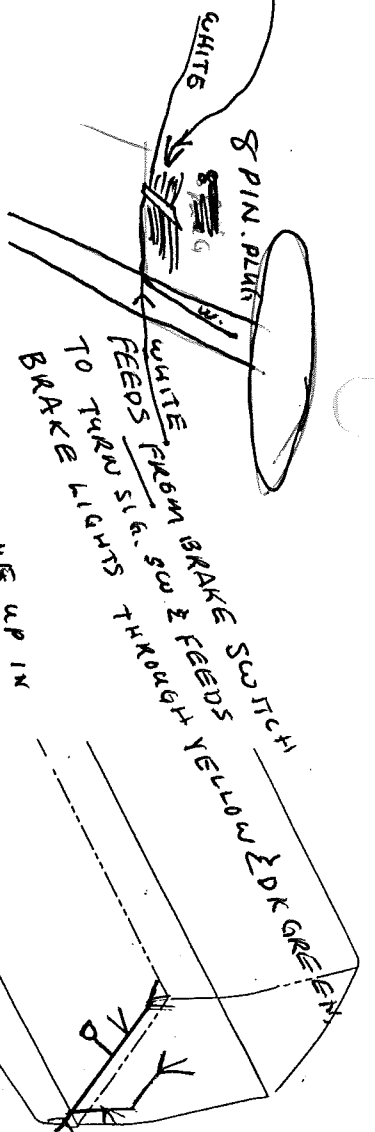 WHITE
8 PIN. PLUG
W.
WHITE
FEEDS FROM BRAKE SWITCH
TO TURN SIG. SW & FEEDS
BRAKE LIGHTS THROUGH YELLOW & DK GREEN,
UP IN